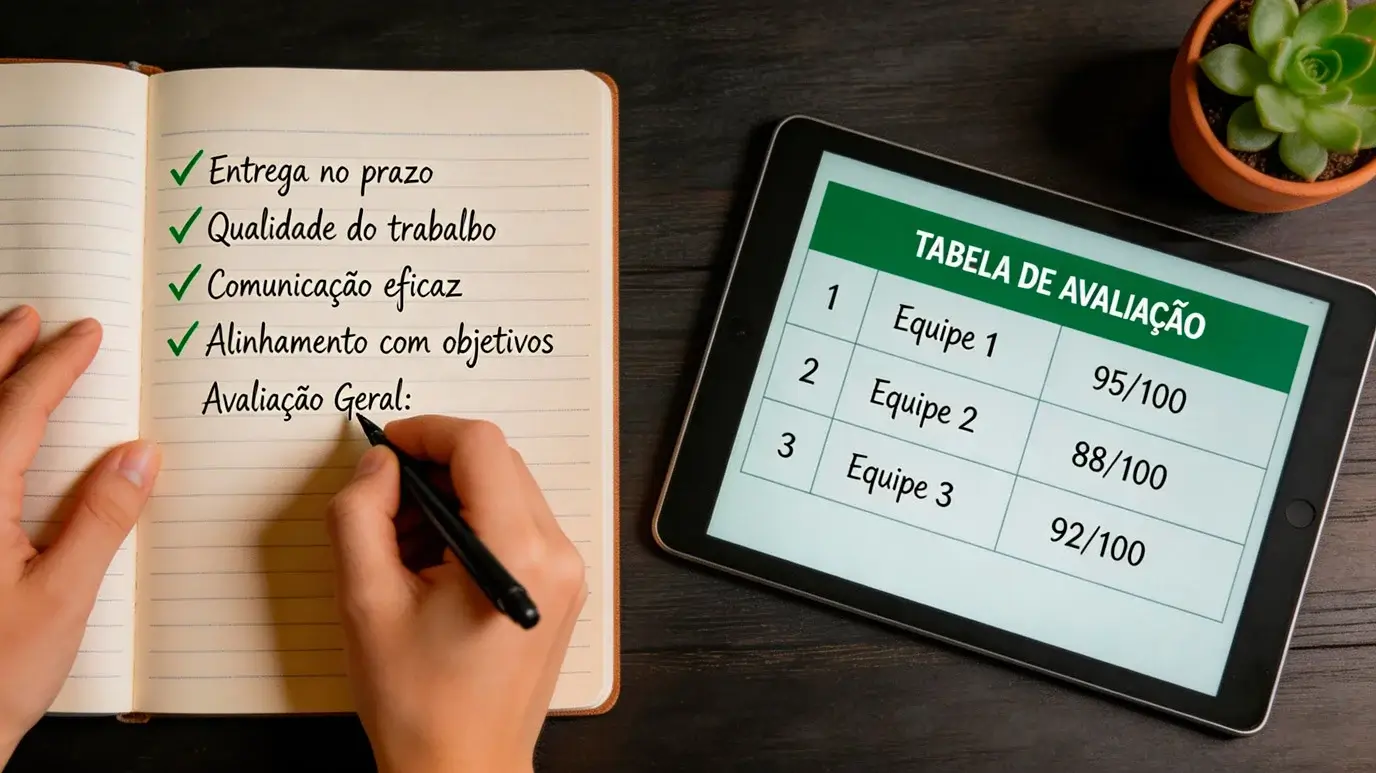 ✓ Entrega no prazo
✓ Qualidade do trabalho
✓ Comunicação eficaz
✓ Alinhamento com objetivos
Avaliação Geral:
TABELA DE AVALIAÇÃO
1 Equipe 1 95/100
2 Equipe 2 88/100
3 Equipe 3 92/100